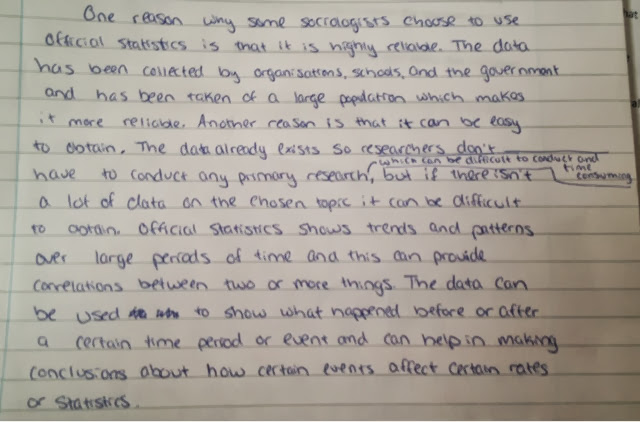 One reason why some sociologists choose to use
official statistics is that it is highly reliable. The data
has been collected by organisations, schools, and the government
and has been taken of a large population which makes
it more reliable. Another reason is that it can be easy
to obtain. The data already exists so researchers don't
which can be difficult to conduct and
time
consuming
have to conduct any primary research, but if there isn't
a lot of data on the chosen topic it can be difficult
to obtain. Official statistics shows trends and patterns
over large periods of time and this can provide
correlations between two or more things. The data can
be used to show what happened before or after
a certain time period or event and can help in making
conclusions about how certain events affect certain rates
or statistics.